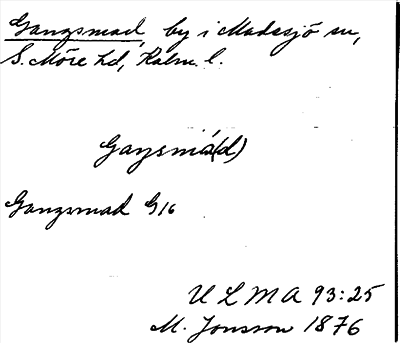 Gangsmad, by i Madesjö sn,
S. Möre hd, Kalm. l.
Gaysmá(d)
Gangsmad G16
ULMA 93:25
M. Jonsson 1876